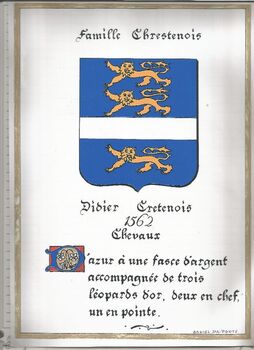 Famille Chrestenois
Didier Cretenois
1562
Chevaux
D'azur à une fasce d'argent
accompagnée de trois
léopards d'or, deux en chef,
un en pointe.